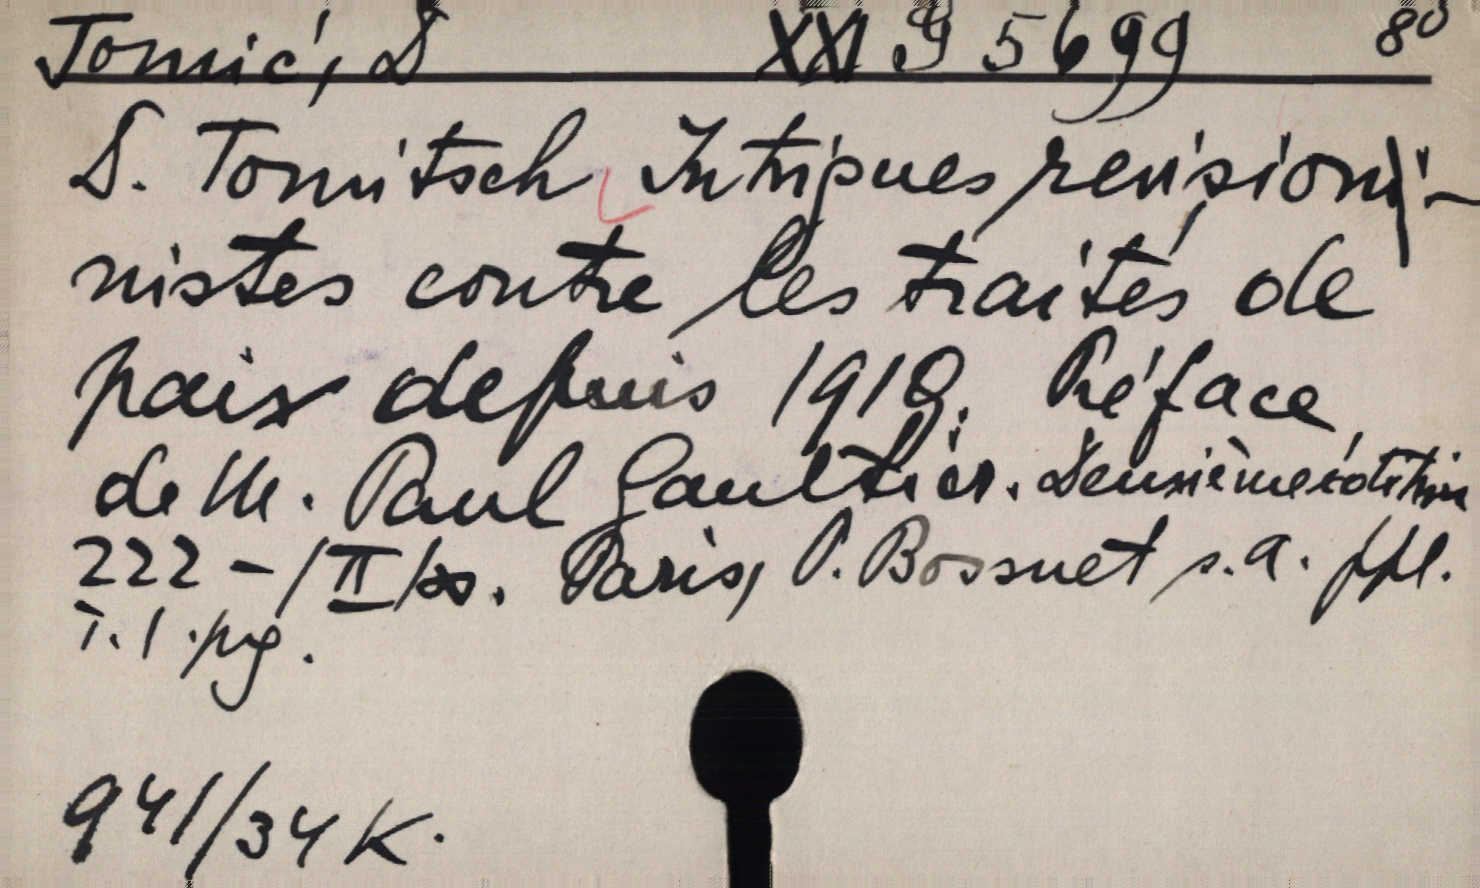 Tomić, D XXI G 5699 8°
D. Tomitsch Intrigues revisioni-
nistes contre les traités de
paix depuis 1918. Préface
de M. Paul Gaultier. Deuxième édition
222 - /II/ Paris, P. Bossuet s.a. ppl.
i. 1. pg.
941/34 K.